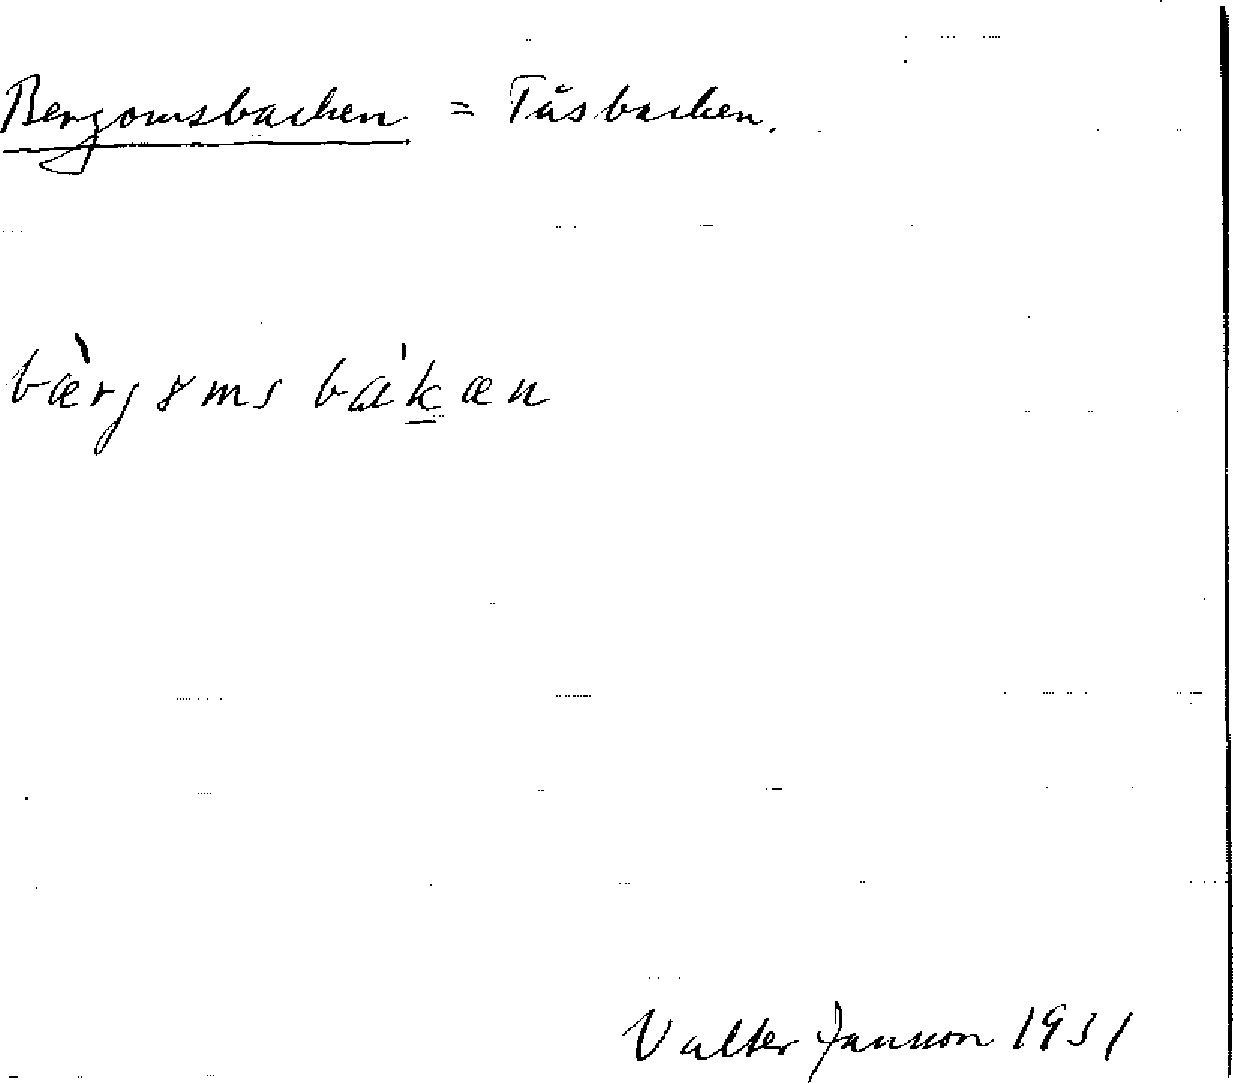 Bergomsbacken = Tåsbacken.
bæ̀rjɤms bákæn
Valter Janson 1931